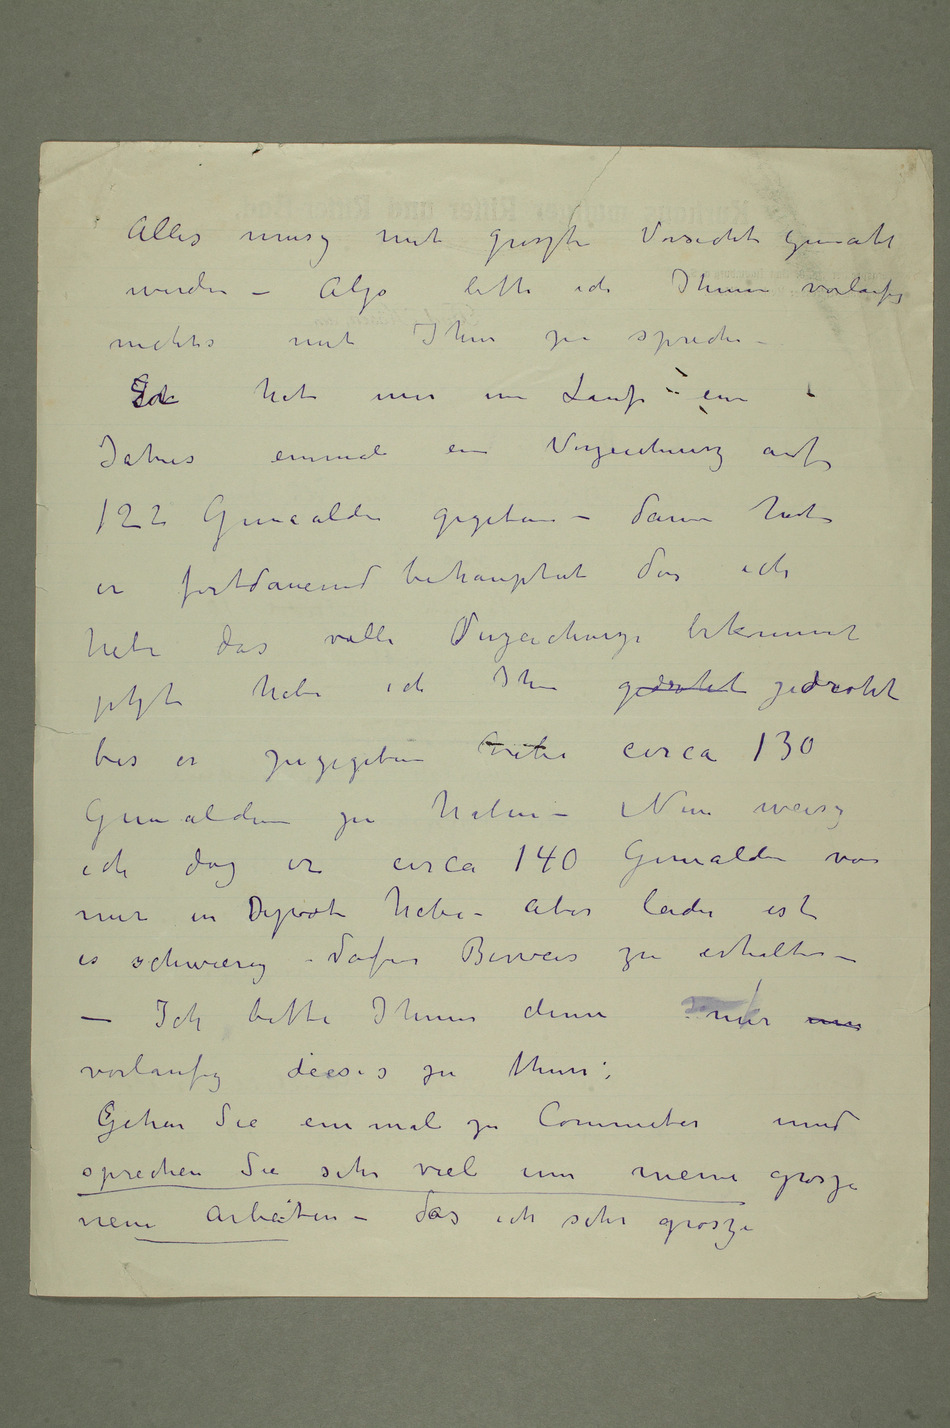 Alles musz mit groszte Vorsicht gemacht
werden – Also bitte ich Ihnen vorlaufig
nichts mit Ihm zu sprechen –
Er hat mir im Laufe ein
Jahres einmal ein Verzeichnisz auf
122 Gemaalden gegeben – dann hat
er fortdauernd behauptet das ich
habe das volle Verzeichnisz bekommt
jetzt habe ich Ihm gedrohet gedroht
bis er zugegeben circa 130
Gemalden zu haben – Nun weisz
ich dasz er circa 140 Gemalden von
mir in Depot habe – aber leider ist
es schwierig dafur Beweis zu erhalten –
– Ich bitte Ihnen denn nur
vorlaufig dieses zu thun:
Gehen Sie einmal zu Commeter und
sprechen Sie sehr viel um meine grosze
neue Arbeiten – das ich sehr grosze